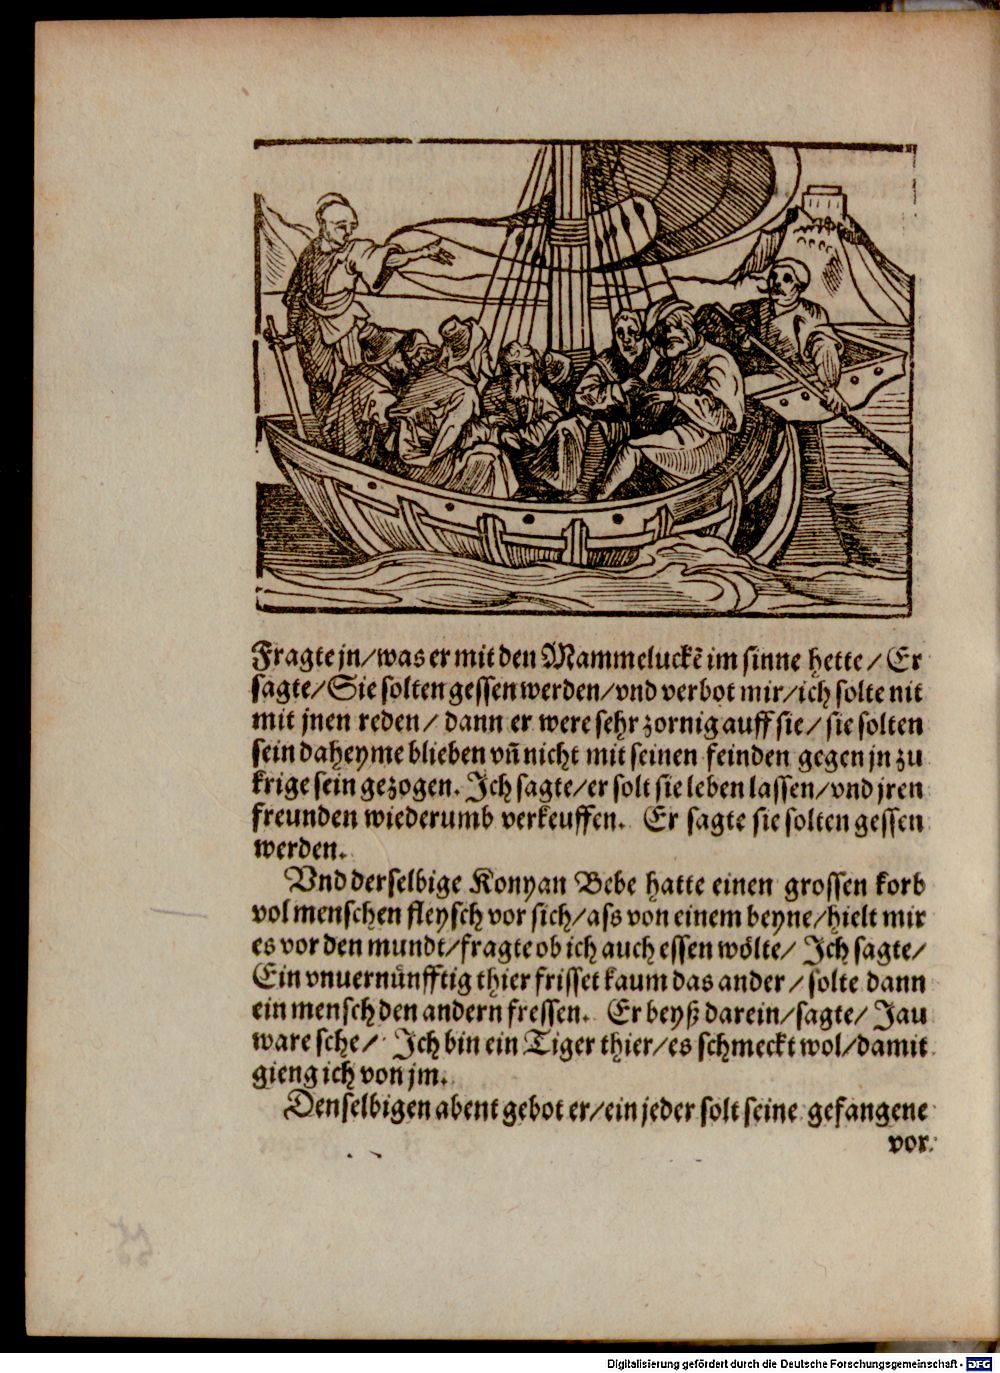 Fragte jn/was er mit den Mammeluckē im sinne hette/ Er
sagte/Sie solten gessen werden/vnd verbot mir/ich solte nit
mit jnen reden/ dann er were sehr zornig auff sie/ sie solten
sein daheyme blieben vñ nicht mit seinen feinden gegen jn zu
krige sein gezogen. Ich sagte/er solt sie leben lassen/vnd jren
freunden wiederumb verkeuffen. Er sagte sie solten gessen
werden.
Vnd derselbige Konyan Bebe hatte einen grossen korb
vol menschen fleysch vor sich/ass von einem beyne/hielt mir
es vor den mundt/fragte ob ich auch essen wölte/ Ich sagte/
Ein vnuernünfftig thier frisset kaum das ander/ solte dann
ein mensch den andern fressen. Er beyß darein/sagte/ Jau
ware sche/ Ich bin ein Tiger thier/es schmeckt wol/damit
gieng ich von jm.
Denselbigen abent gebot er/ein jeder solt seine gefangene
vor
Digitalisierung gefördert durch die Deutsche Forschungsgemeinschaft - DFG